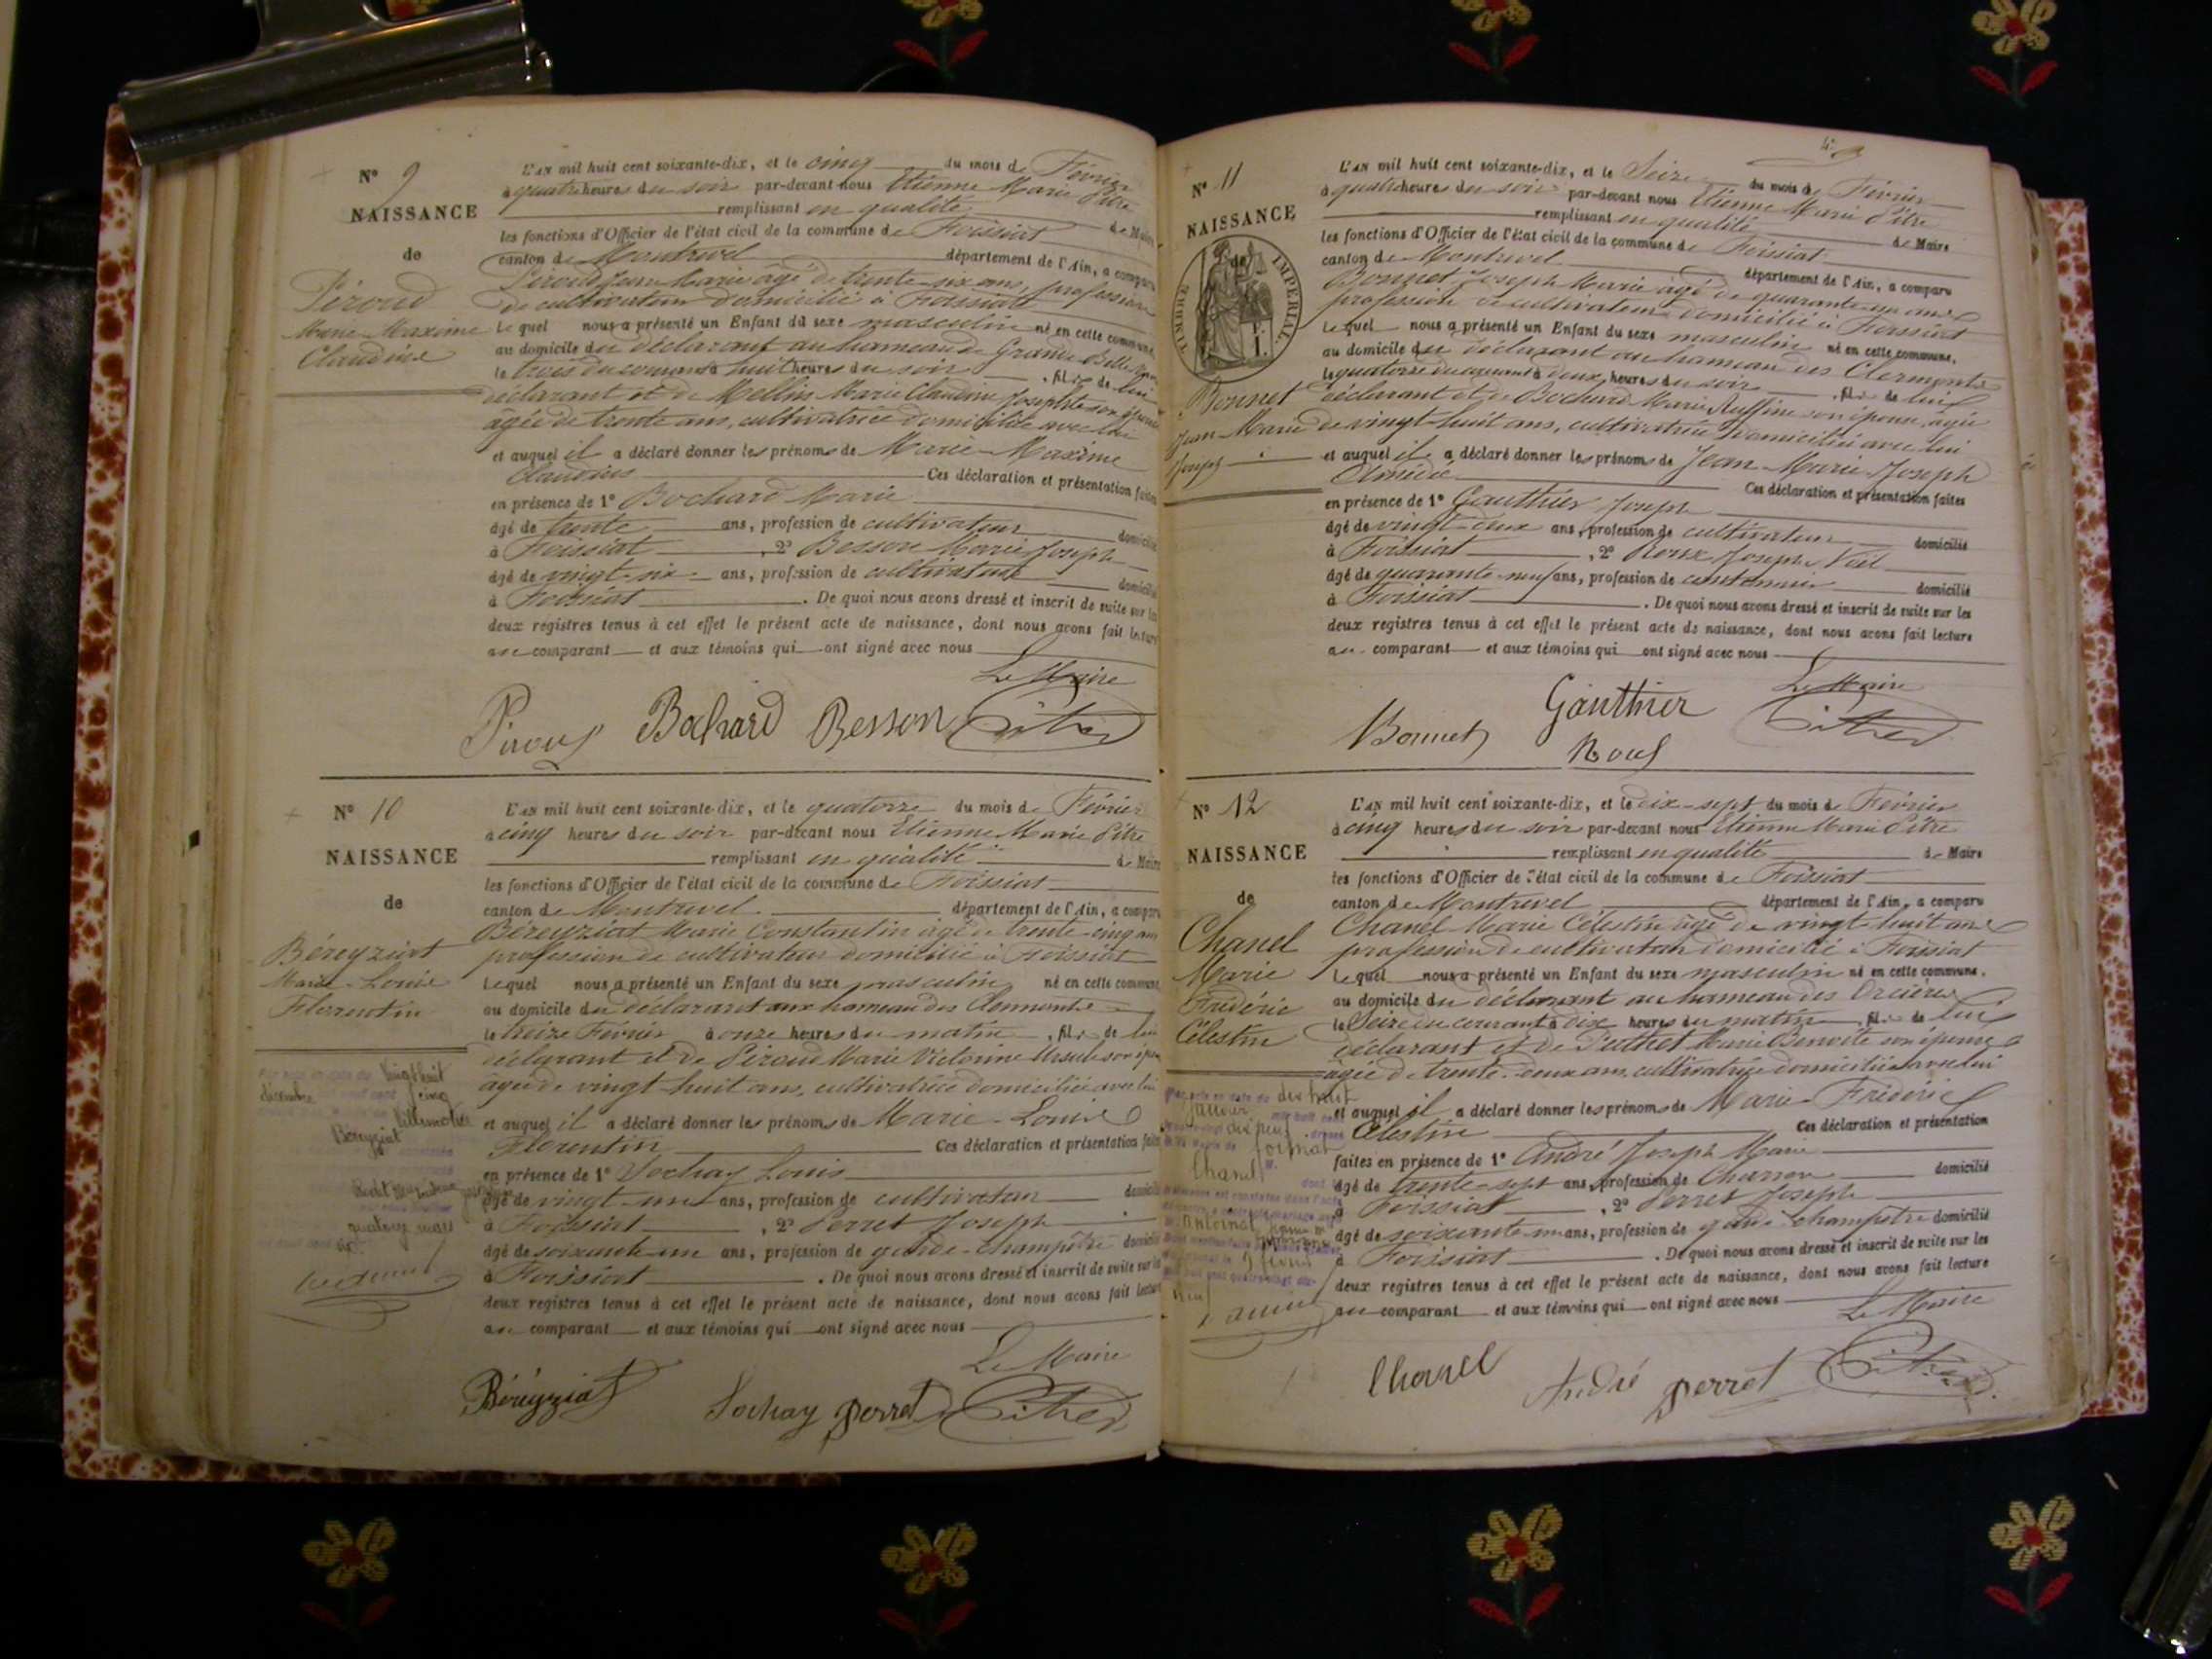 N° 9
NAISSANCE
de
Péroud
Marie Maxime
Claudius
L'AN mil huit cent soixante-dix, et le cinq du mois de Février
à quatre heures du soir par-devant nous Etienne Marie Pitre
remplissant en qualité de Maire
les fonctions d'Officier de l'état civil de la commune de Foissiat
canton de Montrevel département de l'Ain, a comparu
Péroud Jean Marie âgé de trente-six ans, profession
de cultivateur domicilié à Foissiat
Lequel nous a présenté un Enfant du sexe masculin né en cette commune,
au domicile du déclarant au hameau de Grande
le trois du courant à huit heures du soir, fils de lui
déclarant et de Mellin Marie Claudine Josephte son épouse
âgée de trente ans, cultivatrice domiciliée avec lui
et auquel il a déclaré donner les prénoms de Marie-Maxime
Claudius Ces déclaration et présentation faites
en présence de 1° Bochard Marie
âgé de trente ans, profession de cultivateur domicilié
à Foissiat, 2° Besson Marie Joseph
âgé de vingt-six ans, profession de cultivateur domicilié
à Foissiat. De quoi nous avons dressé et inscrit de suite sur les
deux registres tenus à cet effet le présent acte de naissance, dont nous avons fait lecture
au comparant et aux témoins qui ont signé avec nous
Le Maire
Bochard Besson Pitre
N° 10
NAISSANCE
de
Béreyziat
Marie-Louis
Florentin
L'AN mil huit cent soixante-dix, et le quatorze du mois de Février
à cinq heures du soir par-devant nous Etienne Marie Pitre
remplissant en qualité de Maire
les fonctions d'Officier de l'état civil de la commune de Foissiat
canton de Montrevel département de l'Ain, a comparu
Béreyziat Marie Constantin âgé de trente-cinq ans
profession de cultivateur domicilié à Foissiat
Lequel nous a présenté un Enfant du sexe masculin né en cette commune
au domicile du déclarant aux hameau des Clermonts
le treize Février à onze heures du matin, fils de lui
déclarant et de Péroud Marie Victorine Ursule son épouse
âgée de vingt-huit ans, cultivatrice domiciliée avec lui
et auquel il a déclaré donner les prénoms de Marie-Louis
Florentin Ces déclaration et présentation faites
en présence de 1° Sochay Louis
âgé de vingt-un ans, profession de cultivateur domicilié
à Foissiat, 2° Perret Joseph
âgé de soixante-un ans, profession de garde-champêtre domicilié
à Foissiat. De quoi nous avons dressé et inscrit de suite sur les
deux registres tenus à cet effet le présent acte de naissance, dont nous avons fait lecture
au comparant et aux témoins qui ont signé avec nous
Le Maire
Béreyziat Sochay Perret Pitre
vingt huit
décembre cinq
Villemotier
Béreyziat
quatorze mars
N° 11
NAISSANCE
de
TIMBRE IMPERIAL
Bonnet
Jean Marie
Joseph
L'AN mil huit cent soixante-dix, et le Seize du mois de Février
à quatre heures du soir par-devant nous Etienne Marie Pitre
remplissant en qualité de Maire
les fonctions d'Officier de l'état civil de la commune de Foissiat
canton de Montrevel département de l'Ain, a comparu
Bonnet Joseph Marie âgé de quarante-un ans
profession de cultivateur domicilié à Foissiat
Lequel nous a présenté un Enfant du sexe masculin né en cette commune,
au domicile du déclarant au hameau des Clermonts
le quatorze du courant à deux heures du soir, fils de lui
déclarant et de Bochard Marie Ruffine son épouse, âgée
de vingt-huit ans, cultivatrice domiciliée avec lui
et auquel il a déclaré donner les prénoms de Jean-Marie-Joseph
Aimédé Ces déclaration et présentation faites
en présence de 1° Gauthier Joseph
âgé de vingt-deux ans, profession de cultivateur domicilié
à Foissiat, 2° Roux Joseph Noël
âgé de quarante-neuf ans, profession de cantonnier domicilié
à Foissiat. De quoi nous avons dressé et inscrit de suite sur les
deux registres tenus à cet effet le présent acte de naissance, dont nous avons fait lecture
au comparant et aux témoins qui ont signé avec nous
Le Maire
Bonnet Gauthier Pitre
Roux
N° 12
NAISSANCE
de
Chanel
Marie
Frédéric
Célestin
L'AN mil huit cent soixante-dix, et le dix-sept du mois de Février
à cinq heures du soir par-devant nous Etienne Marie Pitre
remplissant en qualité de Maire
les fonctions d'Officier de l'état civil de la commune de Foissiat
canton de Montrevel département de l'Ain, a comparu
Chanel Marie Célestin âgé de vingt-huit ans
profession de cultivateur domicilié à Foissiat
Lequel nous a présenté un Enfant du sexe masculin né en cette commune,
au domicile du déclarant au hameau des Orcières
le Seize du courant à dix heures du matin, fils de lui
déclarant et de Marie Benoite son épouse
âgée de trente-deux ans, cultivatrice domiciliée avec lui
et auquel il a déclaré donner les prénoms de Marie-Frédéric
Célestin Ces déclaration et présentation
faites en présence de 1° André Joseph Marie
âgé de trente-sept ans, profession de Charron domicilié
à Foissiat, 2° Perret Joseph
âgé de soixante-un ans, profession de garde-champêtre domicilié
à Foissiat. De quoi nous avons dressé et inscrit de suite sur les
deux registres tenus à cet effet le présent acte de naissance, dont nous avons fait lecture
au comparant et aux témoins qui ont signé avec nous
Le Maire
Chanel André Perret Pitre
dix huit
Janvier
Chanel
Antoinet